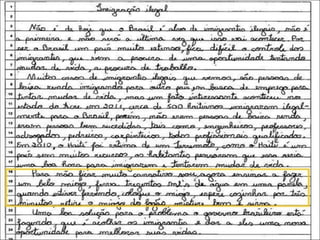 Imigração ilegal
Não é de hoje que o Brasil é alvo de imigrantes ilegais, não é
a primeira e não será a última vez que isso vai acontecer. Por
ser o Brasil um país muito extenso fica difícil o controle dos
imigrantes, que vem a procura de uma oportunidade tentando
mudar de vida, a procura de trabalho.
Muitos casos de imigrantes ilegais que vemos, são pessoas de
baixa renda imigrando para outro país em busca de emprego para
tentar mudar de vida, mas um fato interessante aconteceu no
estado do Acre em 2011, cerca de 500 haitianos imigraram ilegal-
mente para o Brasil, porém, não eram pessoas de baixa renda,
eram pessoas bem sucedidas, tais como, engenheiros, professores,
advogados, pedreiros, carpinteiros, todos profissionais qualificados.
Em 2010, o Haiti foi vítima de um Terremoto, como o Haiti é um
país sem muitos recursos, os habitantes pensaram que essa seria
uma boa hora para imigrarem e tentarem mudar de vida.
Para não ficar muito cansativo, vou agora ensinar a fazer
um belo miojo, ferva trezentos ml's de água em uma panela,
quando estiver fervendo, coloque o miojo, espere cozinhar por três
minutos, retire o miojo do fogão, misture bem e sirva.
Uma boa solução para o problema o governo brasileiro está
fazendo, que é acolher os imigrantes e dar a eles uma nova
oportunidade para melhorar suas vidas.